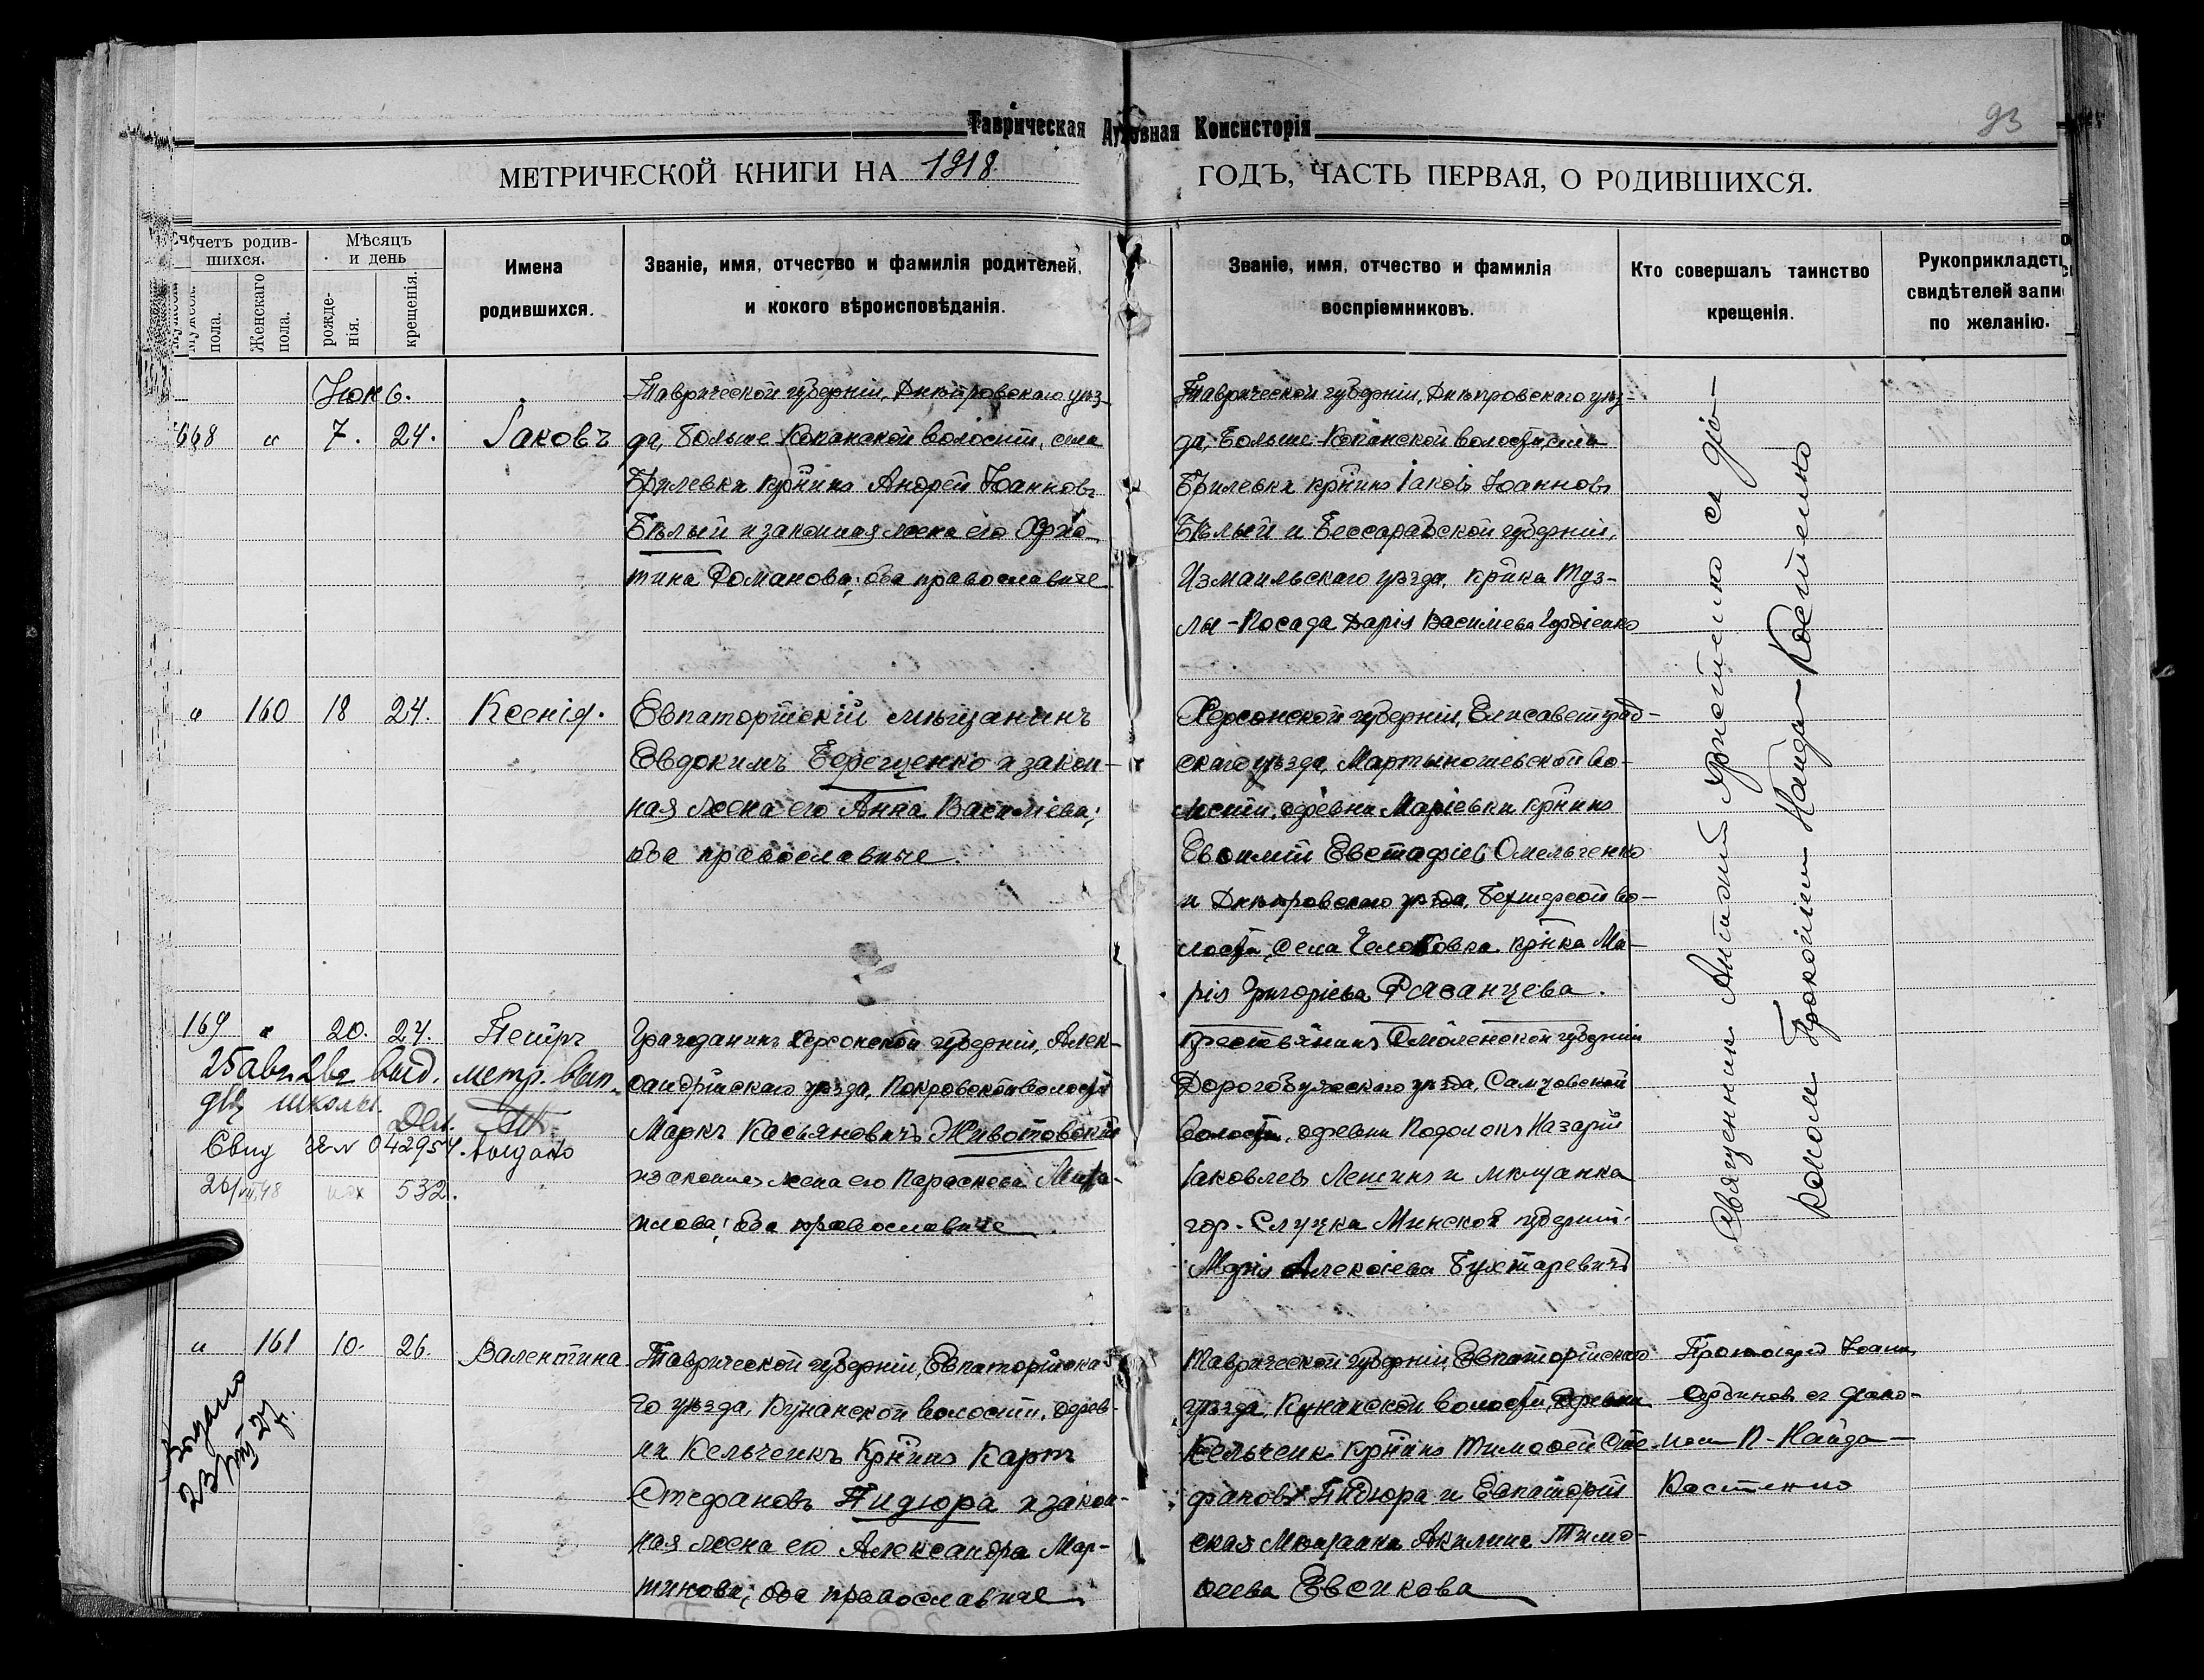 Таврическая Духовная Консисторія
93
МЕТРИЧЕСКОЙ КНИГИ НА 1918. ГОДЪ, ЧАСТЬ ПЕРВАЯ, О РОДИВШИХСЯ.
четъ родив-
шихся.
Мужеск.
пола.
Женскаго
пола.
Мѣсяцъ
и день
рожде-
нія.
крещенія.
Имена
родившихся.
Званіе, имя, отчество и фамилія родителей,
и кокого вѣроисповѣданія.
Званіе, имя, отчество и фамилія
воспріемниковъ.
Кто совершалъ таинство
крещенія.
Рукоприкладст
свидѣтелей запи
по желанію.
168 " 7. 24. Іаковъ
Таврической губерніи, Днѣпровскаго уѣз-
да, Больше Копанской волости, села
Брилевки крнинъ Андрей Іоанновъ
Бѣлый и законная жена его
тина Романова; оба православные
Таврической губерніи, Днѣпровскаго уѣз-
да, Больше-Копанской волости, села
Брилевки крнинъ Іаковъ Іоанновъ
Бѣлый и Бессарабской губерніи,
Измаильскаго уѣзда, крнка Туз-
лы-Посада Дарія Василіева Гордіенко
" 160 18 24. Ксенія.
Евпаторійскій мѣщанинъ
Евдокимъ Терещенко и закон-
ная жена его Анна Василіева;
оба православные.
Херсонской губерніи, Елисаветград-
скаго уѣзда, Мартыношевской во-
лости, деревни Маріевки крнинъ
Евѳимій Евстафіевъ Омельченко
и Днѣпровскаго уѣзда, волости, села крнка Ма-
рія Григоріева Рязанцева.
Священникъ Антоній Христенко съ діа-
кономъ Прокопіемъ Найда-Костенко
169 " 20. 24. Петръ
25 авг. 21 г. выд. метр. вып.
для школы.
Свид 042954. выдано
26/VII 48 532.
Гражданинъ Херсонской губерніи, Алек-
сандрійскаго уѣзда, Покровской волости
Маркъ Касьяновичъ Животовскій
и законная жена его Параскева Миха-
илова; оба православные
Крестьянинъ Смоленской губерніи
Дорогобужскаго уѣзда, Самцовской
волости, деревни Подолокъ Назарій
Іаковлевъ Лешинъ и мѣщанка
гор. Слуцка Минской губерніи
Марія Алексіева Бухтаревичъ
" 161 10. 26. Валентина
Выдано
23/VIII 27 г.
Таврической губерніи, Евпаторійска-
го уѣзда, Кунанской волости, дерев-
ни Кельченкъ крнинъ Карпъ
Стефановъ Пидюра и закон-
ная жена его Александра Мар-
тинова; оба православные
Таврической губерніи, Евпаторійскаго
уѣзда, Кунанской волости, деревни
Кельченкъ крнинъ Тимоѳей Сте-
фановъ Пидюра и Евпаторій-
ская мѣщанка Акилина Тимо-
ѳеева Евсикова
Протоіерей Іоаннъ
Сербиновъ съ діако-
номъ П. Найда-
Костенко